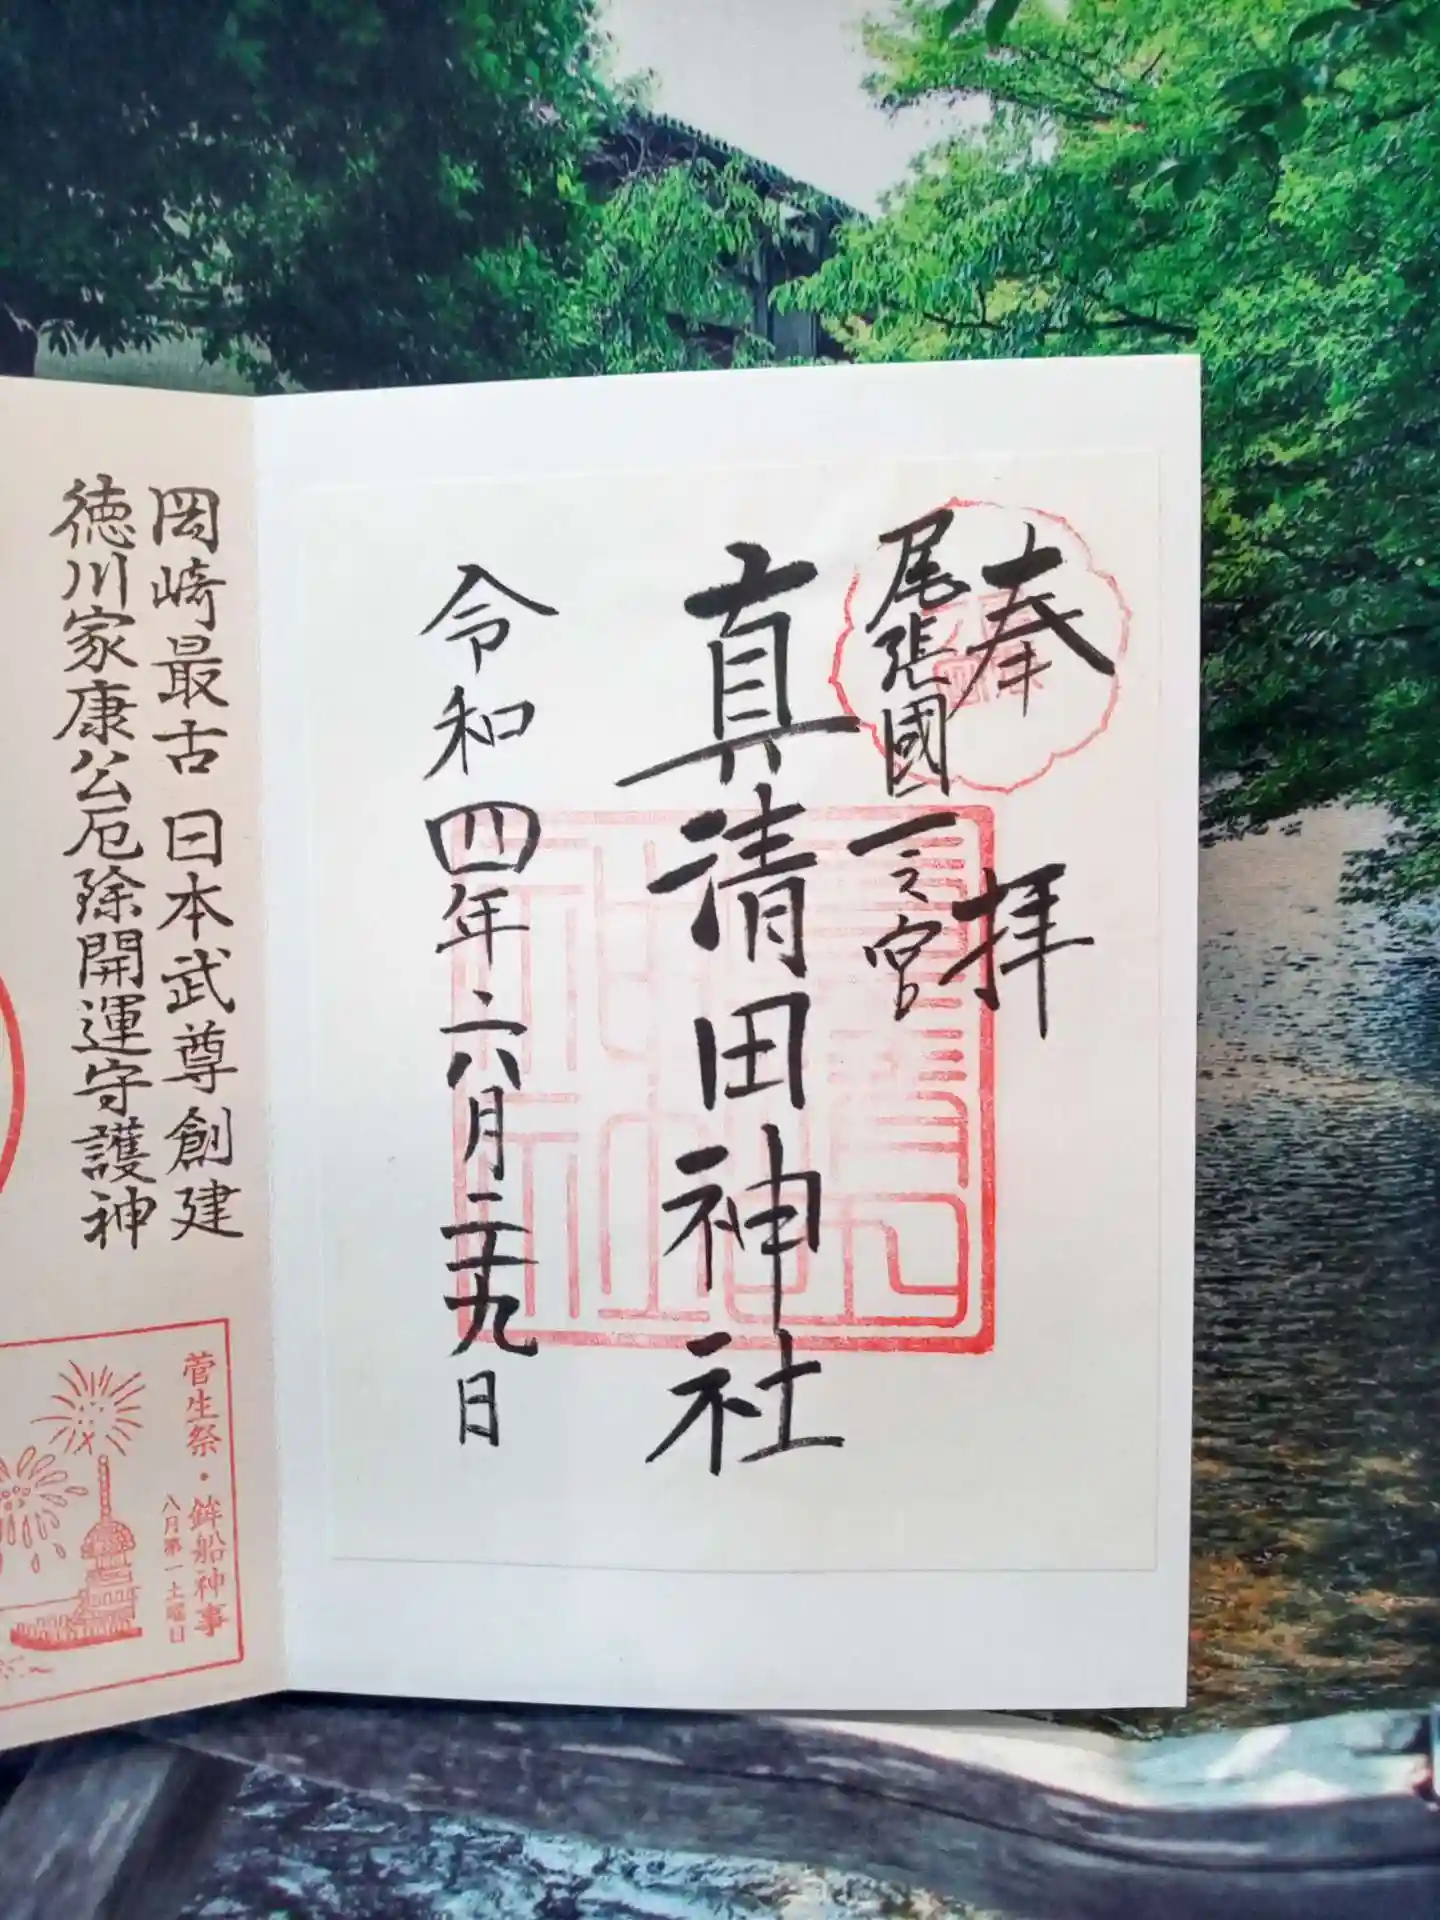 奉拝
尾張國一之宮
真清田神社
令和四年六月二十九日
岡崎最古 日本武尊創建
徳川家康公厄除開運守護神
菅生祭・鉾船神事
八月第一土曜日